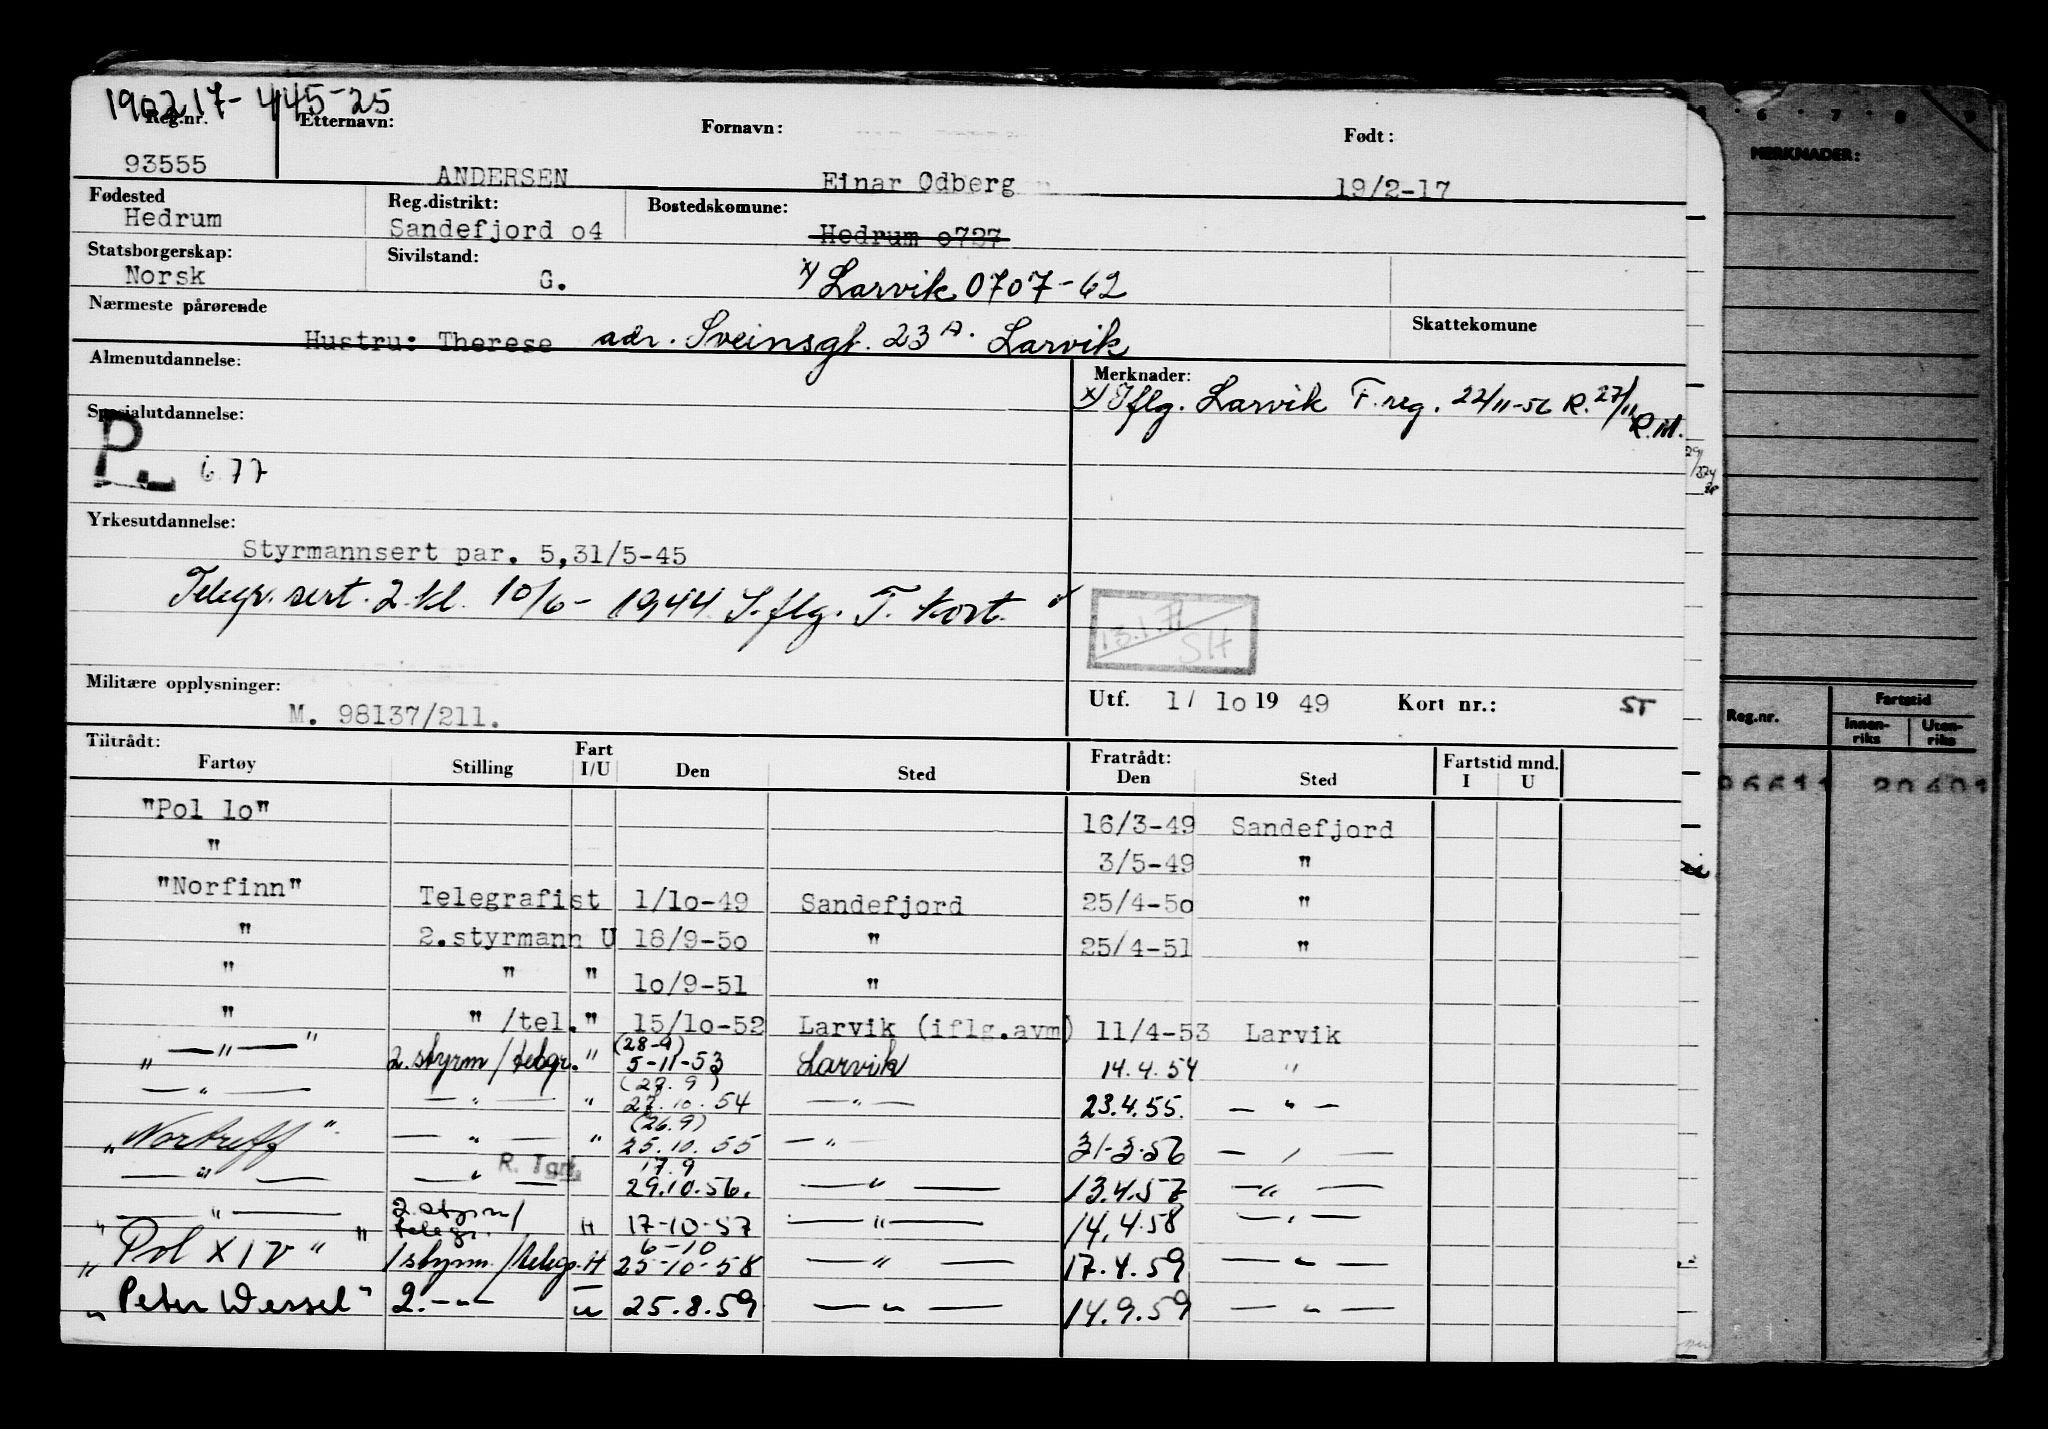 190217-445-25
Reg.nr. Etternavn: Fornavn: Født:
93555 ANDERSEN Einar Odberg 19/2-17
Fødested Reg.distrikt: Bostedskomune:
Hedrum Sandefjord o4 Hedrum o727
Statsborgerskap: Sivilstand:
Norsk G. x) Larvik 0707-62
Nærmeste pårørende Skattekomune
Hustru: Therese adr. Sveinsgt. 23 A. Larvik
Almenutdannelse: Merknader:
x) Iflg. Larvik F.reg. 22/11-56 R. 27/11
Spesialutdannelse:
P. 6 77
Yrkesutdannelse:
Styrmannsert par. 5,31/5-45
Telegr. sert. 2 kl. 10/6-1944 I.flg. T. kort.
13.1.71
SH
Militære opplysninger: Utf. 1/ 1o 19 49 Kort nr.: ST
M. 98137/211.
Tiltrådt: Fart Fratrådt: Fartstid mnd.
Fartøy Stilling I/U Den Sted Den Sted I U
"Pol 1o" 16/3-49 Sandefjord
" 3/5-49 "
"Norfinn" Telegrafist 1/1o-49 Sandefjord 25/4-5o "
" 2.styrmann U 18/9-5o " 25/4-51 "
" " " 1o/9-51 "
" " /tel. " 15/1o-52 Larvik (iflg.avm) 11/4-53 Larvik
(28-9)
" — " — " 2. styrm/telegr. " 5-11-53 Larvik 14.4.54 "
— " — — " — " 27.10.54 — " — 23.4.55. — " —
(26.9)
"Nortreff" — " — " 25.10.55 — " —
17.9
— " — — " — R. 29.10.56. — " — 13.4.57 — " —
— " — 2. styrm/ telegr. H 17-10-57 — " — 14.4.58 — " —
6-10
"Pol XIV" 1 styrm./telegr. H 25-10-58 — " — 17.4.59 — " —
"Peter Wessel" 2. - " - U 25.8.59 — " — 14.9.59 — " —
6 7 8 9
MERKNADER:
Reg.nr. Fartstid
Innen-riks Uten-riks